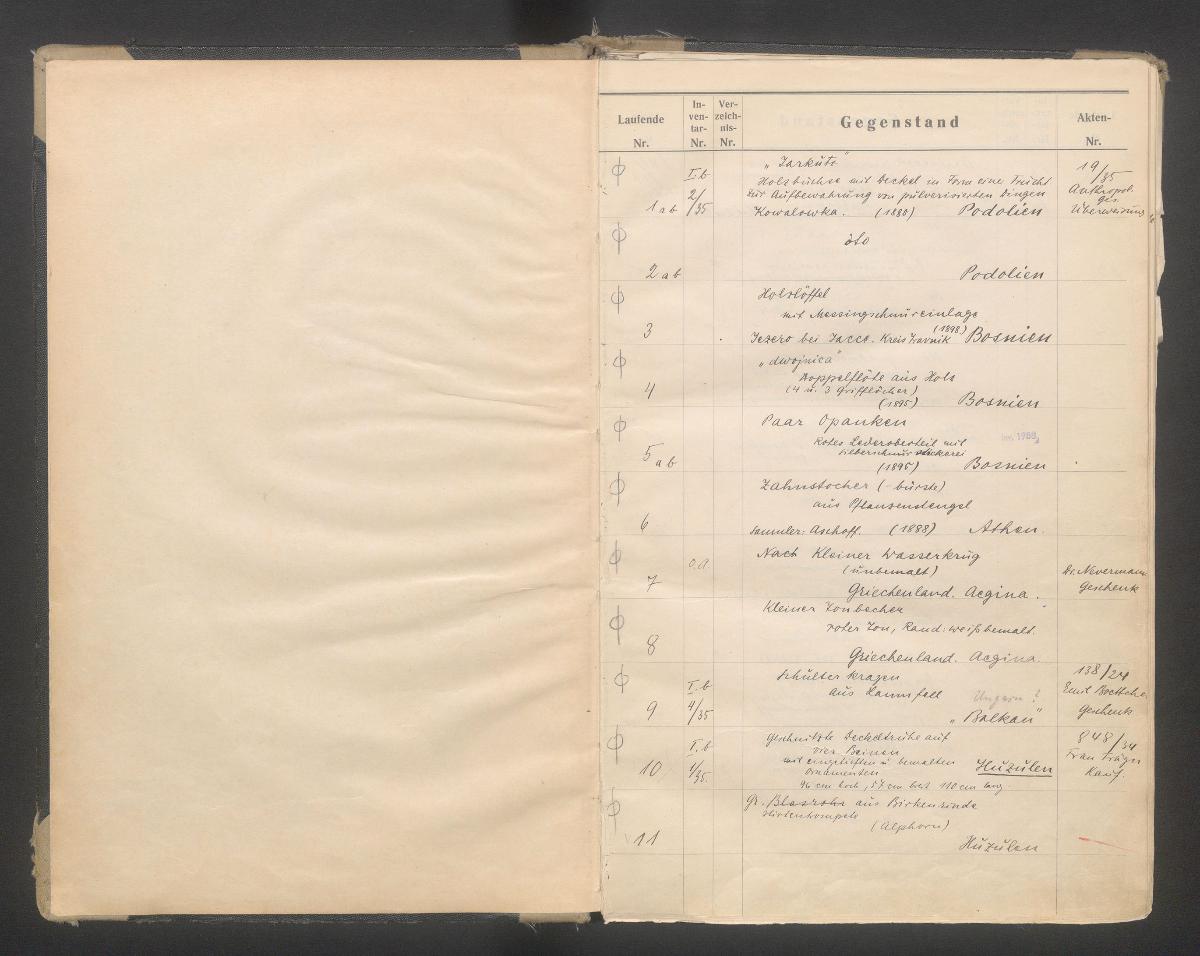 Laufende Nr.
Inventar-Nr.
Verzeichnis-Nr.
Gegenstand
Akten-Nr.
1 a b
I.b 2/35
„Tarkuts"
Holzbüchse mit Deckel in Form einer Frucht
zur Aufbewahrung von pulverisierten Dingen
Kowalowka. (1880) Podolien
19/35
Anthropol.
Ges.
Überweisung
2 a b
dto
Podolien
3
Holzlöffel
mit Messingschnüreinlage
Jezero bei Jacce. Kreis Travnik (1898) Bosnien
4
„dwojnica"
Doppelflöte aus Holz
(4 u. 3 Grifflöcher)
(1895) Bosnien
5 a b
Paar Opanken
Rotes Lederoberteil mit
Silberschnürstickerei
(1895) Bosnien
Inv. 1988
6
Zahnstocher (-bürste)
aus Pflanzenstengel
Sammler: Aschoff. (1888) Athen.
7
o.A
Nach Kleiner Wasserkrug
(unbemalt)
Griechenland. Aegina.
Dr. Nevermann
Geschenk
8
Kleiner Tonbecher
roter Ton, Rand: weiß bemalt.
Griechenland. Aegina.
9
I.b 4/35
Schulterkragen
aus Lammfell Ungarn?
„Balkan"
138/24
Emil Boettcher
Geschenk
10
I.b 1/35.
Geschnitzte Deckeltruhe auf
vier Beinen
mit eingetieften u. bemalten
Ornamenten Huzulen
96 cm hoch, 57 cm breit 110 cm lang.
848/34
Frau
Kauf.
11
Gr. Blasrohr aus Birkenrinde
Hirtentrompete
(Alphorn)
Huzulen